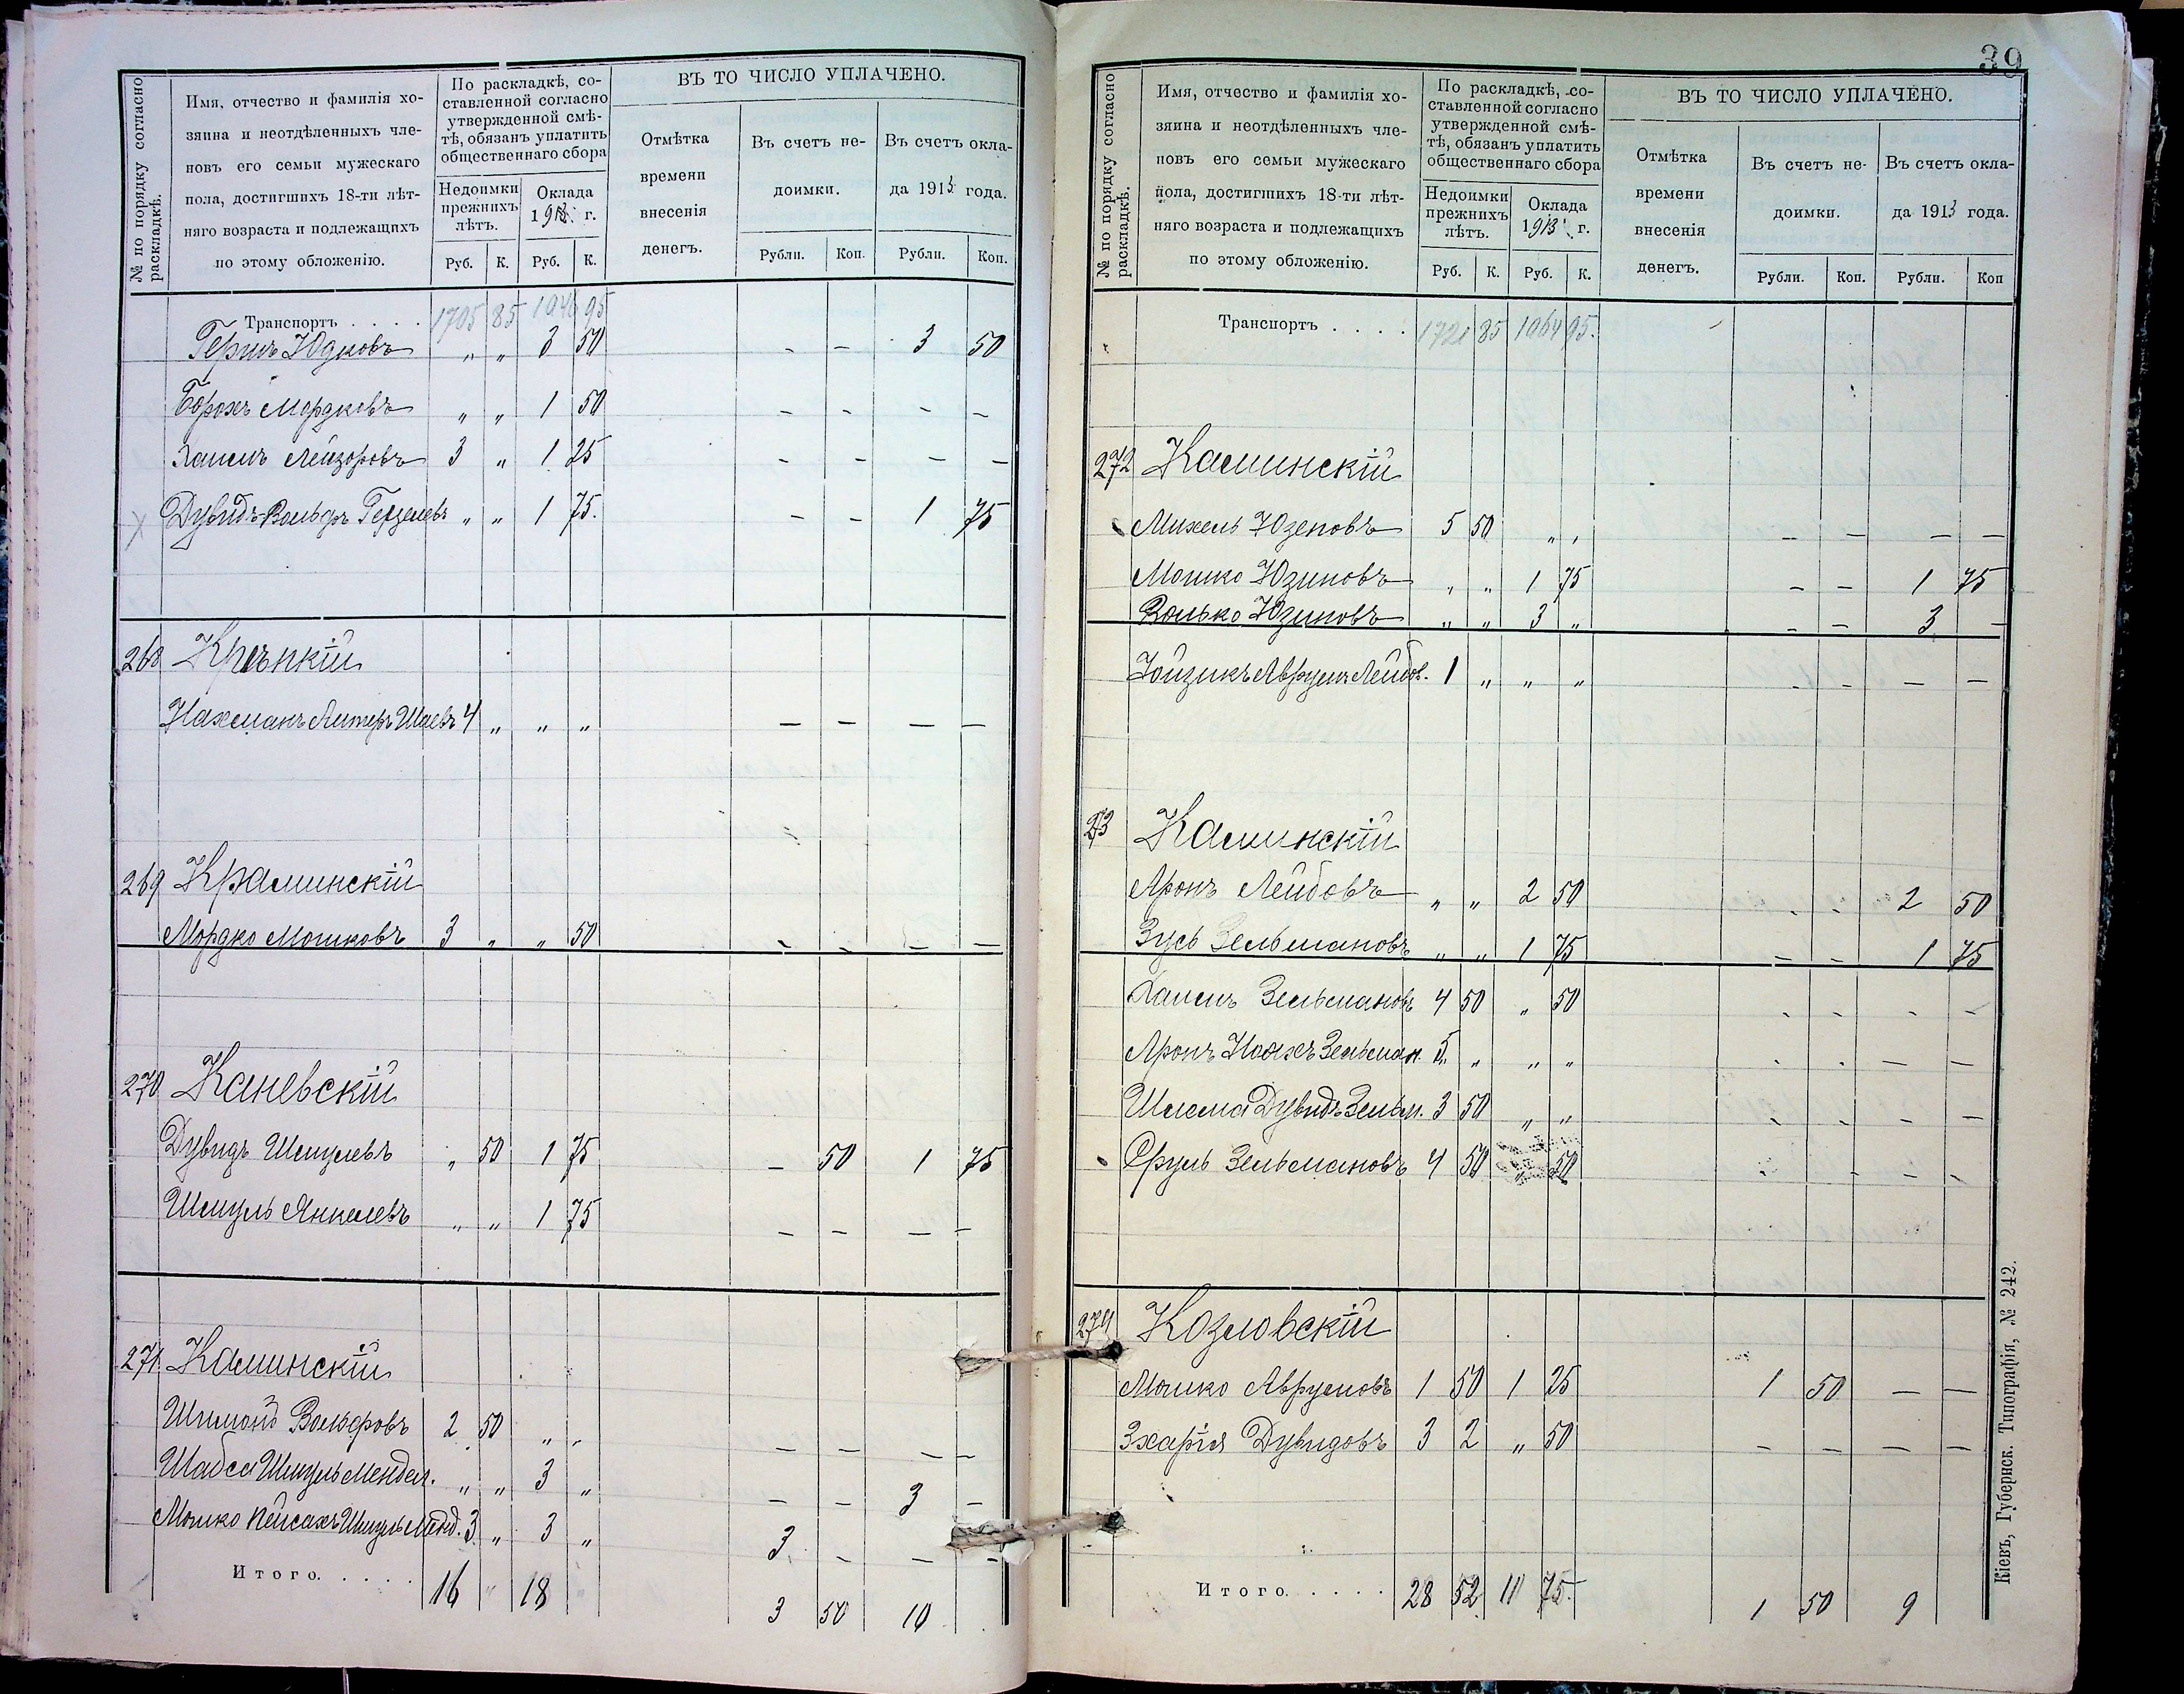 № по порядку согласно раскладкѣ.
Имя, отчество и фамилія хо-
зяина и неотдѣленныхъ чле-
новъ его семьи мужескаго
пола, достигшихъ 18-ти лѣт-
няго возраста и подлежащихъ
по этому обложенію.
По раскладкѣ, со-
ставленной согласно
утвержденной смѣ-
тѣ, обязанъ уплатить
общественнаго сбора
Недоимки прежнихъ лѣтъ.
Оклада 1913 г.
Руб. К. Руб. К.
ВЪ ТО ЧИСЛО УПЛАЧЕНО.
Отмѣтка
времени
внесенія
денегъ.
Въ счетъ не-
доимки.
Въ счетъ окла-
да 1913 года.
Рубли. Коп. Рубли. Коп.
Транспортъ . . . . 1705 85 1046 95
Гершъ Юдковъ „ „ 3 50 - - 3 50
Борохъ Мордковъ „ „ 1 50 - - - -
Хаимъ Лейзоровъ 3 „ 1 25 - - - -
Дувидъ-Вольфъ Герцелевъ „ „ 1 75. - - 1 75
268 Крѣпкій
Нахманъ Алтеръ Шаевъ 4 „ „ „ - - - -
269 Краминскій
Мордко Мошковъ 3 „ „ 50 - - - -
270 Каневскій
Дувидъ Шмулевъ „ 50 1 75 - 50 1 75
Шмуль Янкелевъ „ „ 1 75 - - - -
271. Каминскій
Шимонъ Вольфовъ 2 50 „ „ - - - -
Шабса Шмуль Мендел. „ „ 3 „ - - 3 -
Мошко Пейсахъ Шмуль Менд. 3 „ 3 „ 3 - - -
Итого. . . . . 16 „ 18 „ 3 50 10
39
№ по порядку согласно раскладкѣ.
Имя, отчество и фамилія хо-
зяина и неотдѣленныхъ чле-
новъ его семьи мужескаго
пола, достигшихъ 18-ти лѣт-
няго возраста и подлежащихъ
по этому обложенію.
По раскладкѣ, со-
ставленной согласно
утвержденной смѣ-
тѣ, обязанъ уплатить
общественнаго сбора
Недоимки прежнихъ лѣтъ.
Оклада 1913 г.
Руб. К. Руб. К.
ВЪ ТО ЧИСЛО УПЛАЧЕНО.
Отмѣтка
времени
внесенія
денегъ.
Въ счетъ не-
доимки.
Въ счетъ окла-
да 1913 года.
Рубли. Коп. Рубли. Коп
Транспортъ . . . . 1721 85 1064 95.
272 Каминскій
Михель Юзеповъ 5 50 „ „ - - - -
Мошко Юзиповъ „ „ 1 75 - - 1 75
Волько Юзиповъ „ „ 3 „ - - 3 -
Аврумъ Лейбов. 1 „ „ „ - - - -
273 Каминскій
Аронъ Лейбовъ „ „ 2 50 - - 2 50
Зусь Зельмановъ „ „ 1 75 - - 1 75
Хаимъ Зельмановъ 4 50 „ 50 - - - -
Аронъ Ноахъ Зельман. 5 „ „ „ - - - -
Шлема Дувидъ Зельм. 3 50 „ „ - - - -
Сруль Зельмановъ 4 50 „ 50 - - - -
274 Козловскій
Мошко Аврумовъ 1 50 1 25 1 50 - -
Зхарія Дувидовъ 3 2 „ 50 - - - -
Итого. . . . . 28 52 11 75. 1 50 9
Кіевъ, Губернск. Типографія, № 242.